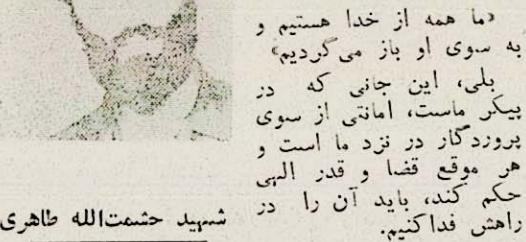 «ما همه از خدا هستیم و
به سوی او باز می‌گردیم»
بلی، این جانی که در
پیکر ماست، امانتی از سوی
پروردگار در نزد ما است و
هر موقع قضا و قدر الهی
حکم کند، باید آن را در
راهش فدا کنیم.
شهید حشمت‌الله طاهری